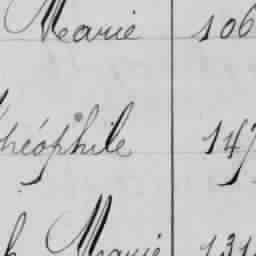 Marie 106
Théophile 147
h Marie 131